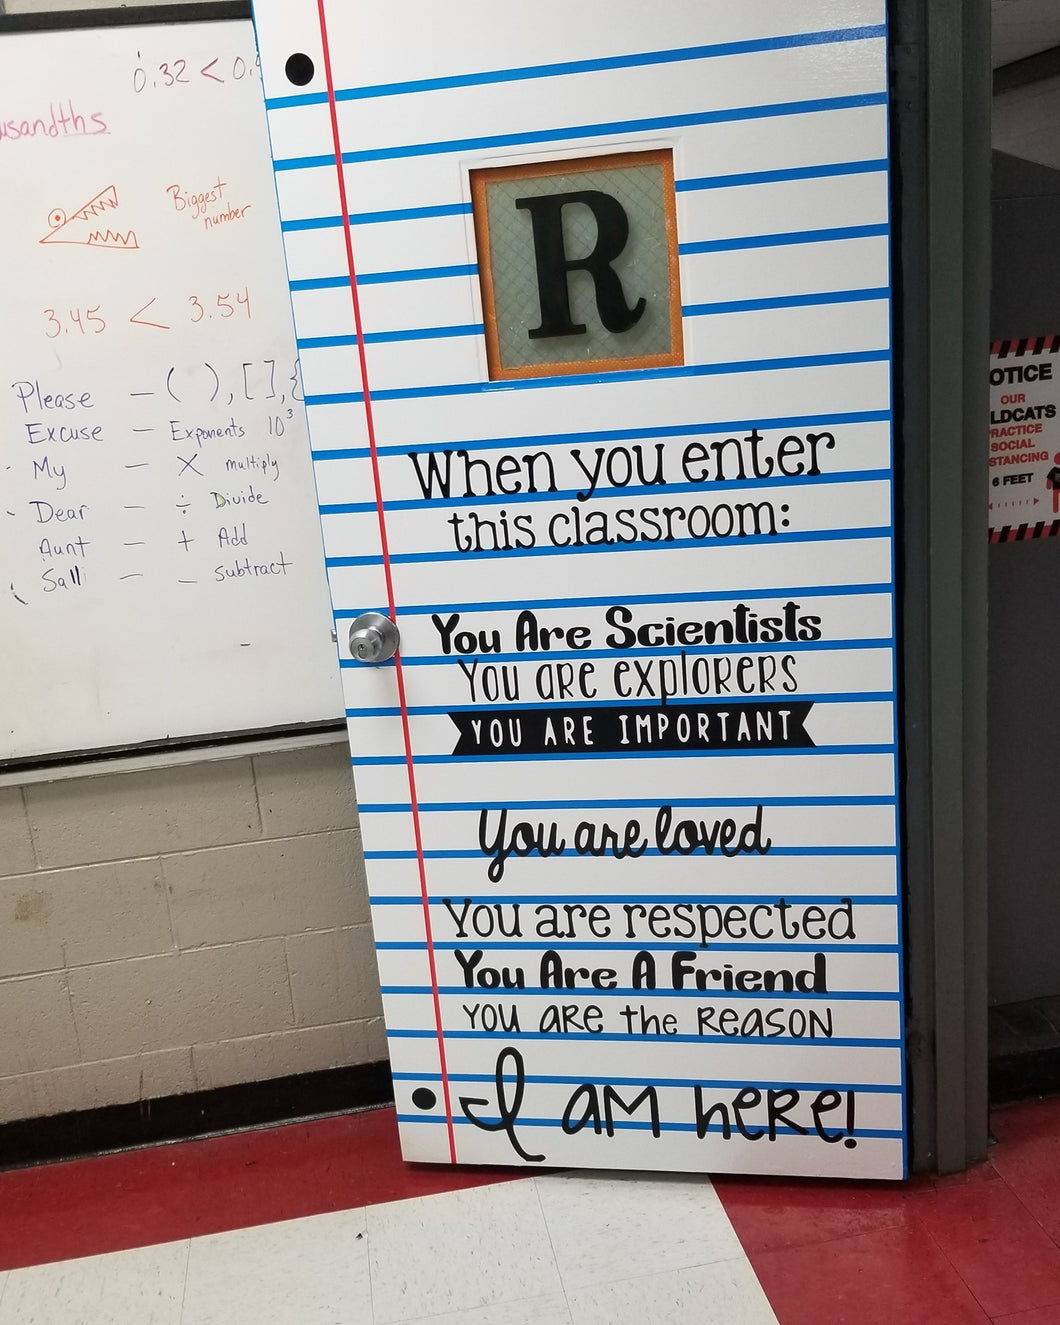 0.32 < 0.
usandths
Biggest
number
3.45 < 3.54
Please — ( ), [ ], {
Excuse — Exponents 10³
My — × multiply
Dear — ÷ Divide
Aunt — + Add
Sall — – subtract
R
When you enter
this classroom:
You Are Scientists
You are explorers
YOU ARE IMPORTANT
You are loved
You are respected
You Are A Friend
you are the reason
I am here!
OTICE
OUR
LDCATS
RACTICE
SOCIAL
STANCING
6 FEET